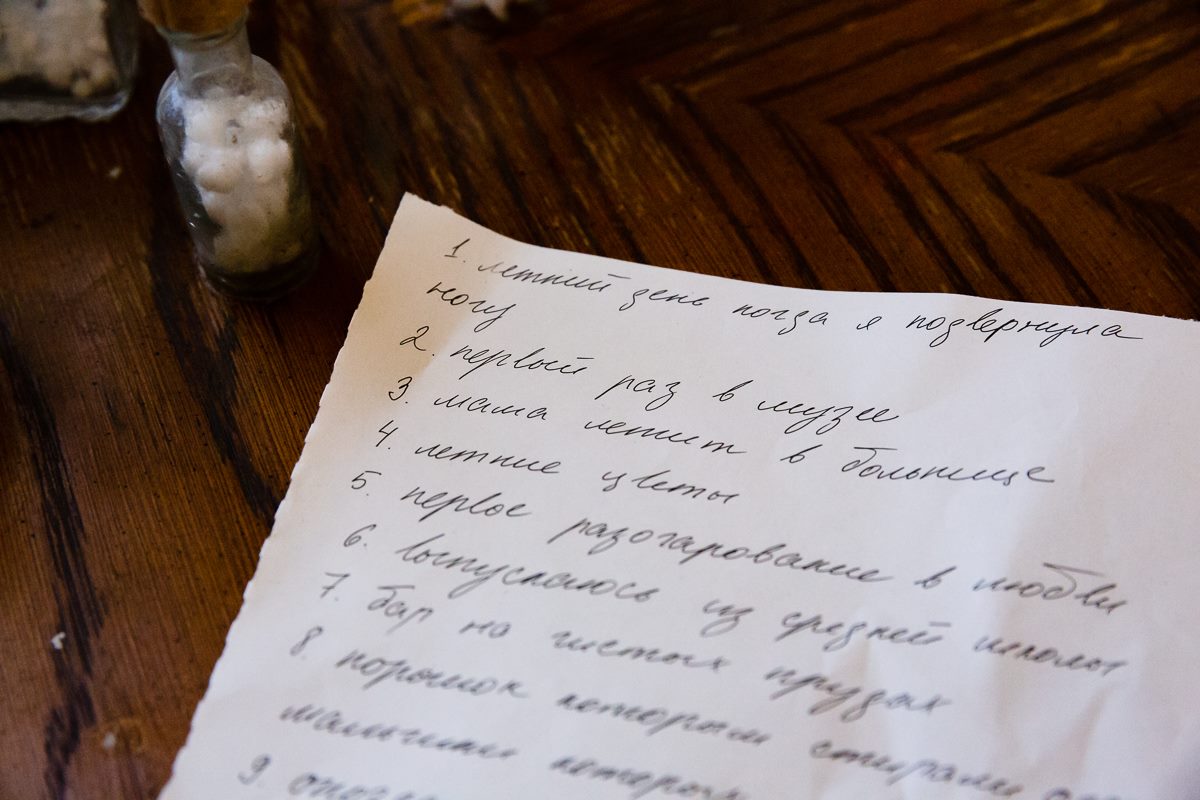 1. летний день когда я подвернула
ногу
2. первый раз в музее
3. мама лежит в больнице
4. летние цветы
5. первое разочарование в любви
6. выпускаюсь из средней школы
7. бар на чистых прудах
8. порошок которым стирали
мальчики которого
9.